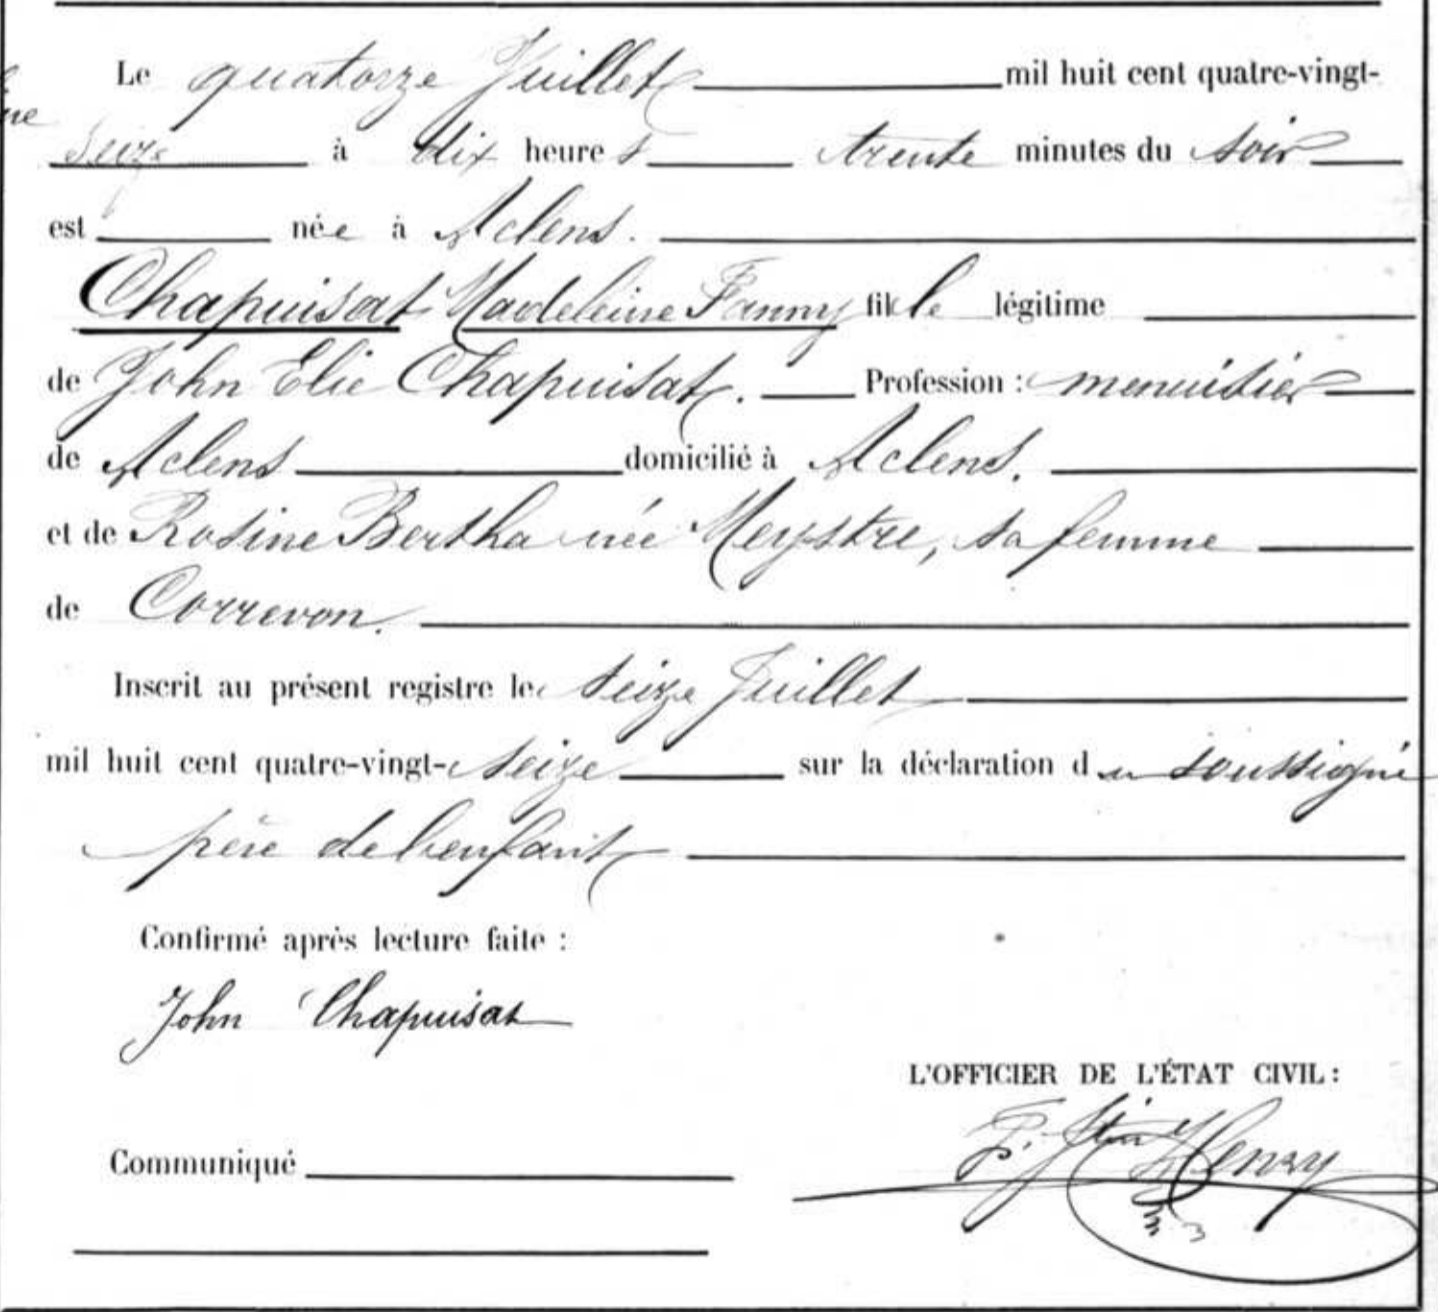 Le quatorze Juillet mil huit cent quatre-vingt-
seize à dix heures trente minutes du soir
est née à Aclens.
Chapuisat Madeleine Fanny fille légitime
de John Elie Chapuisat. Profession : menuisier
de Aclens domicilié à Aclens.
et de Rosine Bertha née Meystre, sa femme
de Correvon.
Inscrit au présent registre le seize Juillet
mil huit cent quatre-vingt-seize sur la déclaration du soussigné
père de l'enfant
Confirmé après lecture faite :
John Chapuisat
L'OFFICIER DE L'ÉTAT CIVIL :
Henry
Communiqué